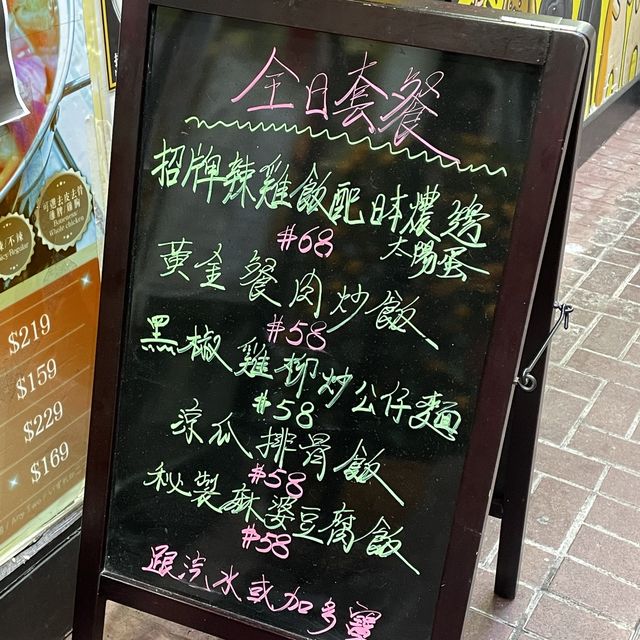 全日套餐
招牌辣雞飯配日本濃湯
太陽蛋
#68
黃金餐肉炒飯
#58
黑椒雞柳炒公仔麵
#58
涼瓜排骨飯
#58
秘製麻婆豆腐飯
#58
跟汽水或加多寶
可選去皮去骨
Boneless
Whole chicken
不辣
Regular
$219
$159
$229
$169